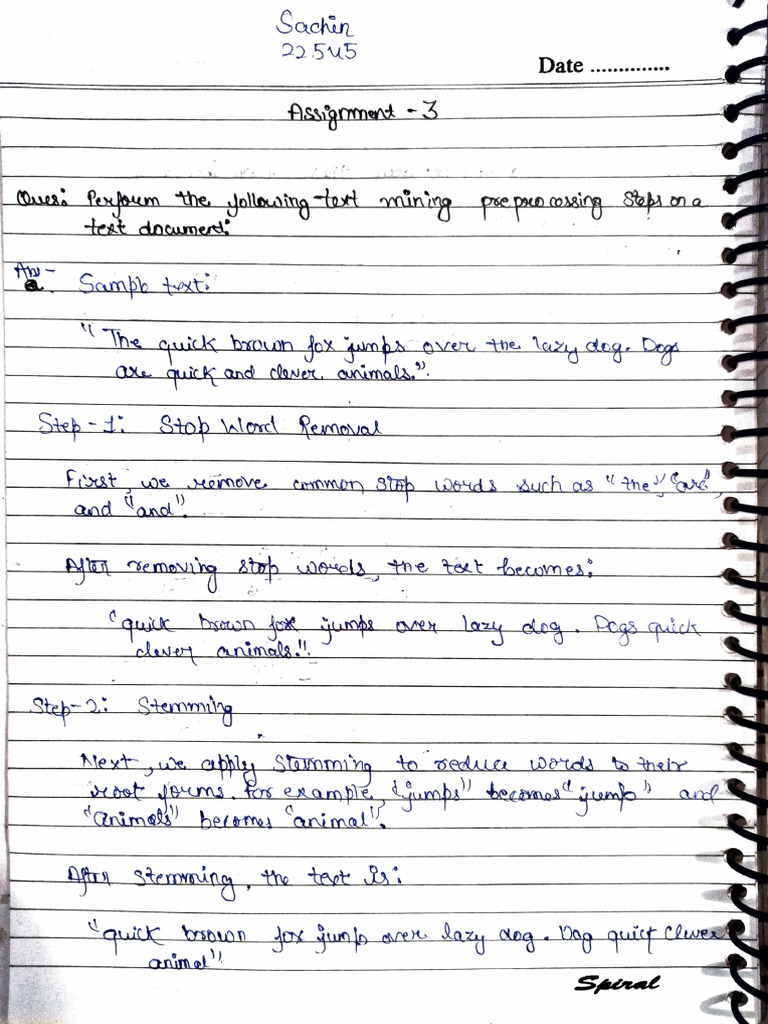 Sachin
22545
Date ..............
Assignment - 3
Ques: Perform the following text mining preprocessing Steps on a
text document:
Ans-
a. Sample text:
"The quick brown fox jumps over the lazy dog. Dogs
are quick and clever animals."
Step-1: Stop Word Removal
First, we remove common stop words such as "the", "are",
and "and".
After removing stop words, the text becomes:
"quick brown fox jumps over lazy dog. Dogs quick
clever animals."
Step-2: Stemming
Next, we apply stemming to reduce words to their
root forms. For example, "jumps" becomes "jump" and
"animals" becomes "animal".
After stemming, the text is:
"quick brown fox jump over lazy dog. Dog quick clever
animal"
Spiral